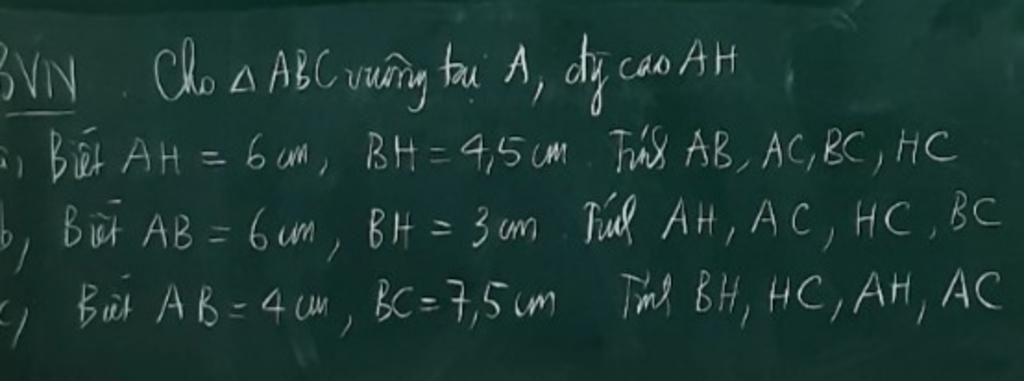 BVN. Cho △ABC vuông tại A, đg cao AH
a, Biết AH = 6 cm, BH = 4,5 cm Tính AB, AC, BC, HC
b, Biết AB = 6 cm, BH = 3 cm Tính AH, AC, HC, BC
c, Biết AB = 4 cm, BC = 7,5 cm Tính BH, HC, AH, AC